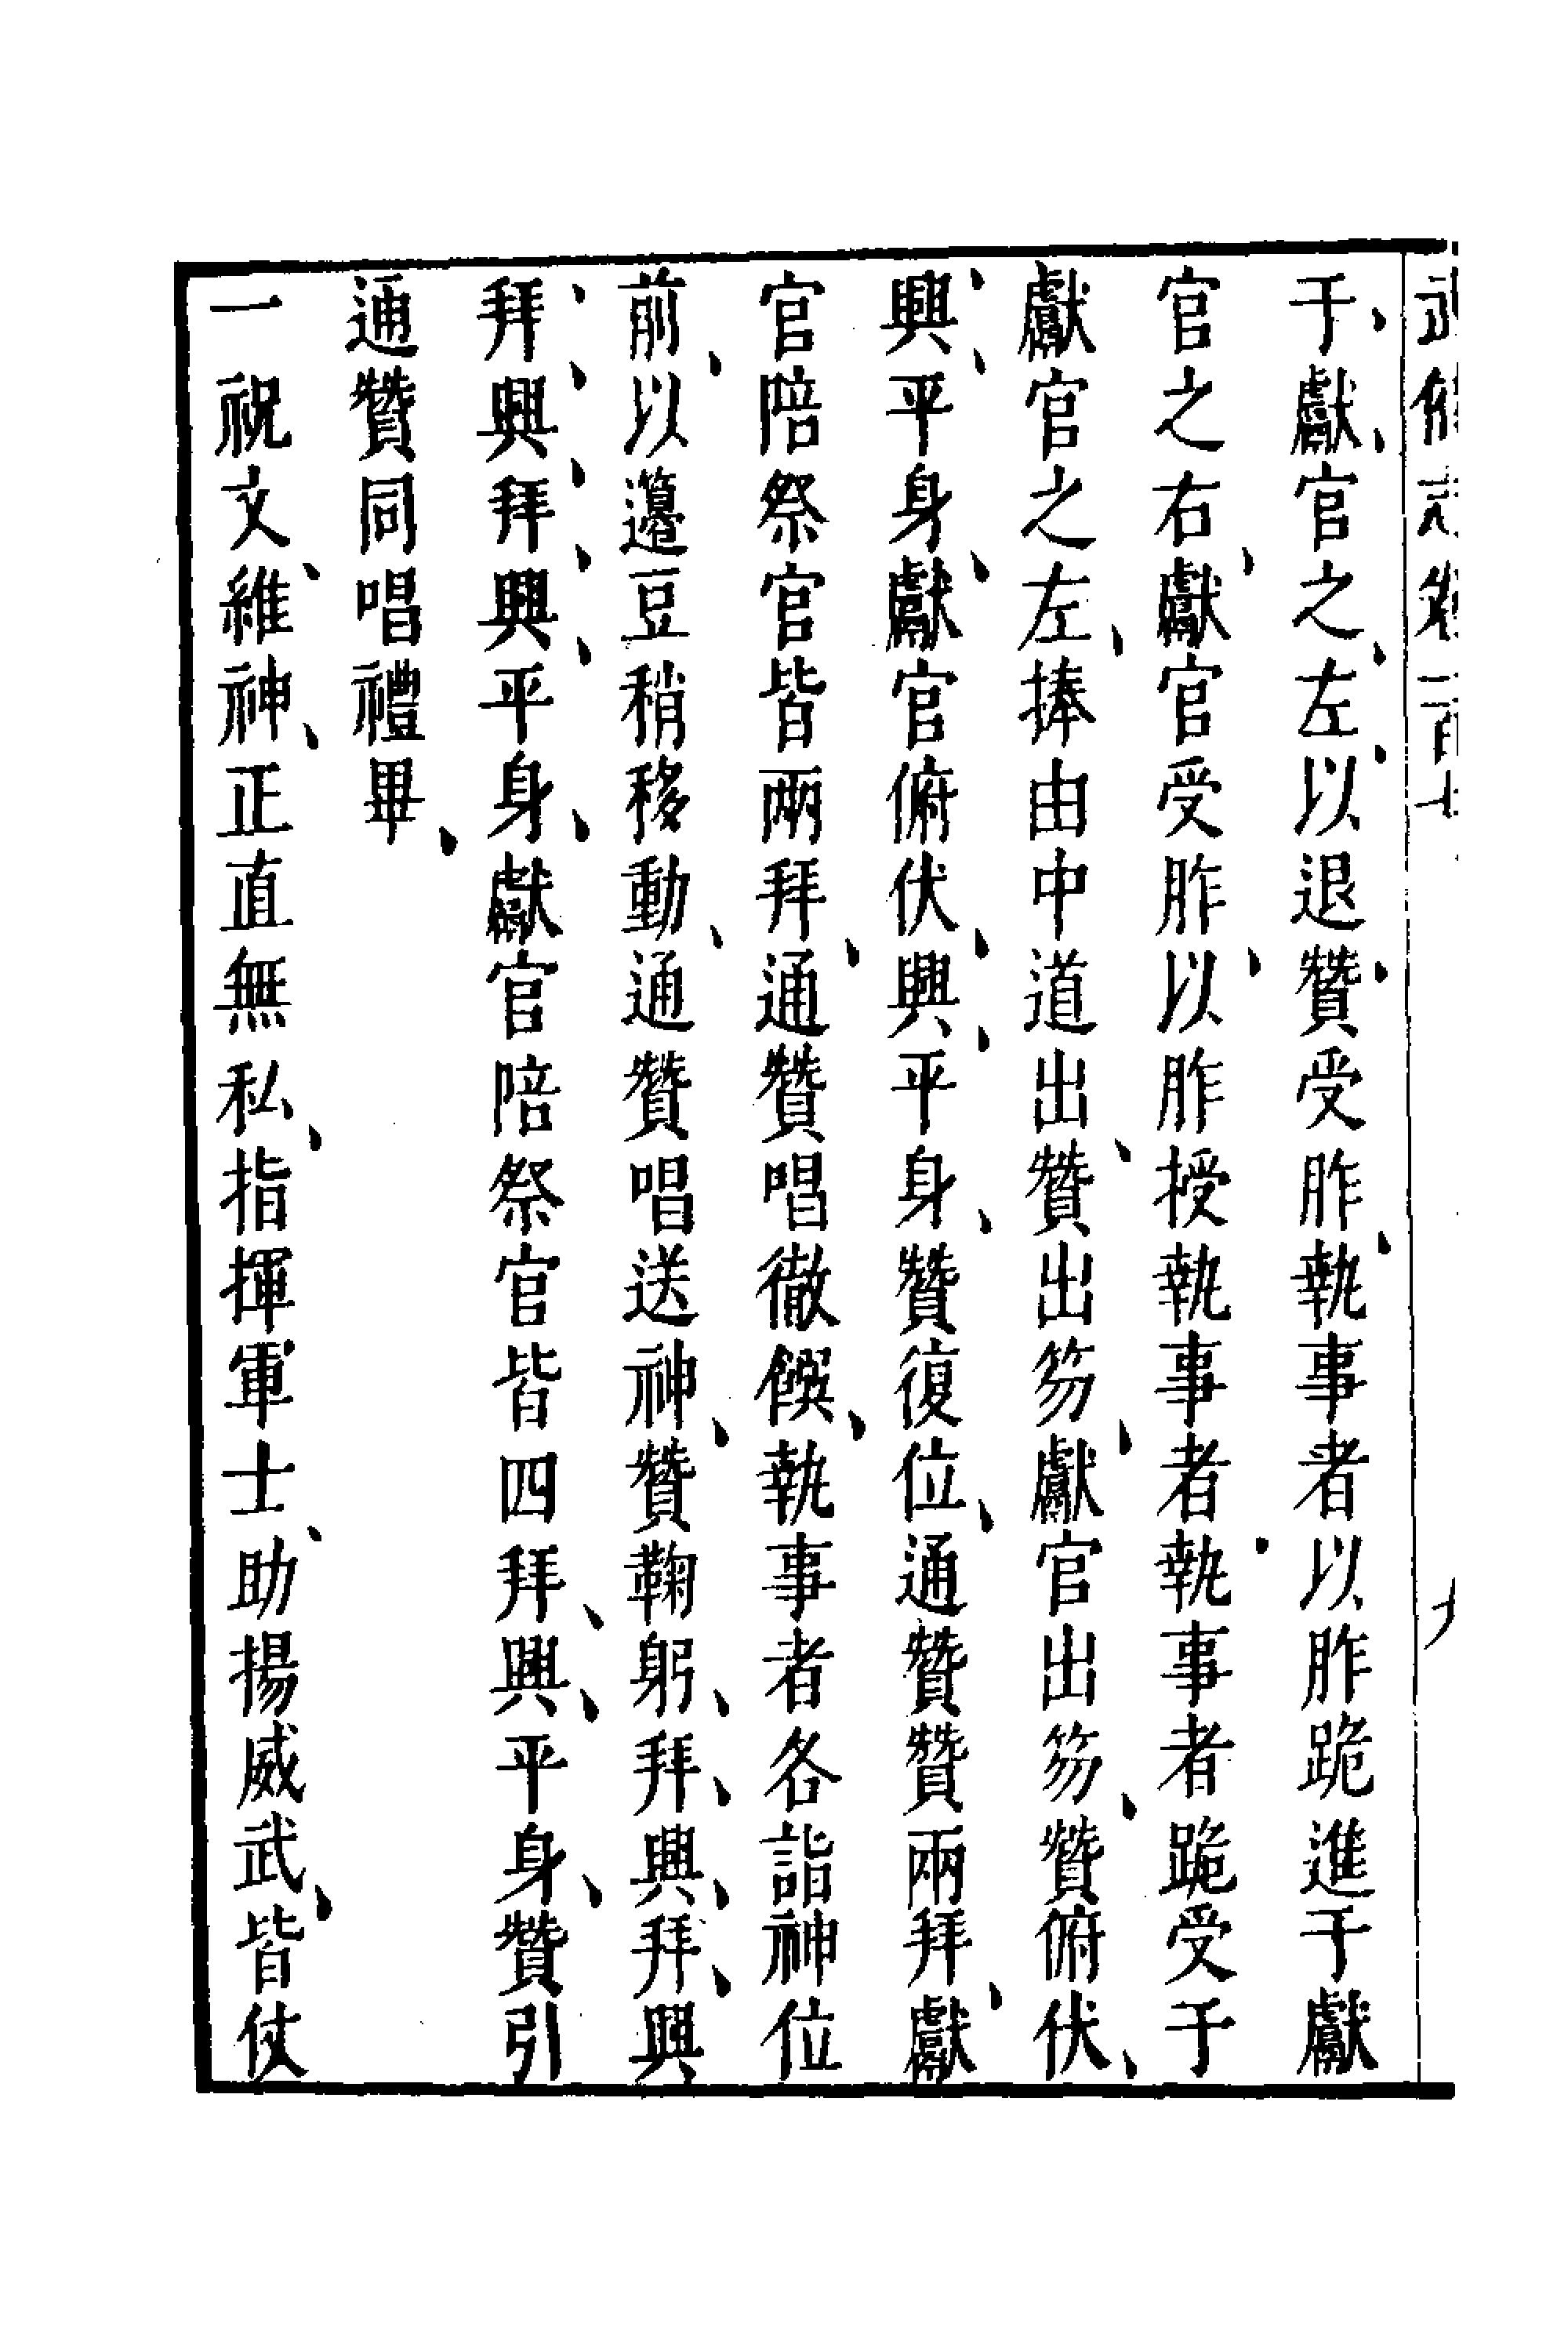 于獻官之左以退贊受胙執事者以胙跪進于獻
官之右獻官受胙以胙授執事者執事者跪受于
獻官之左捧由中道出贊出笏獻官出笏贊俯伏
興平身獻官俯伏興平身贊復位通贊贊兩拜獻
官陪祭官皆兩拜通贊唱徹饌執事者各詣神位
前以籩豆稍移動通贊唱送神贊鞠躬拜興拜興
拜興拜興平身獻官陪祭官皆四拜興平身贊引
通贊同唱禮畢
一祝文維神正直無私指揮軍士助揚威武皆仗